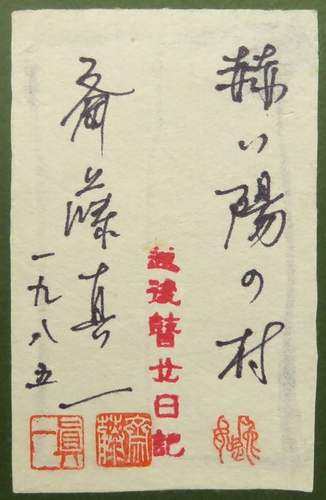 赫い陽の村
越後瞽女日記
斎藤真一
一九八五
斎藤
真一